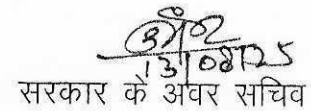 13/08/25
सरकार के अवर सचिव